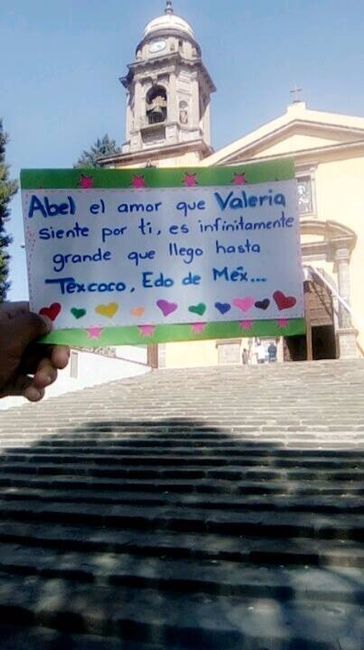 Abel el amor que Valeria
siente por ti, es infinitamente
grande que llego hasta
Texcoco, Edo de Méx...